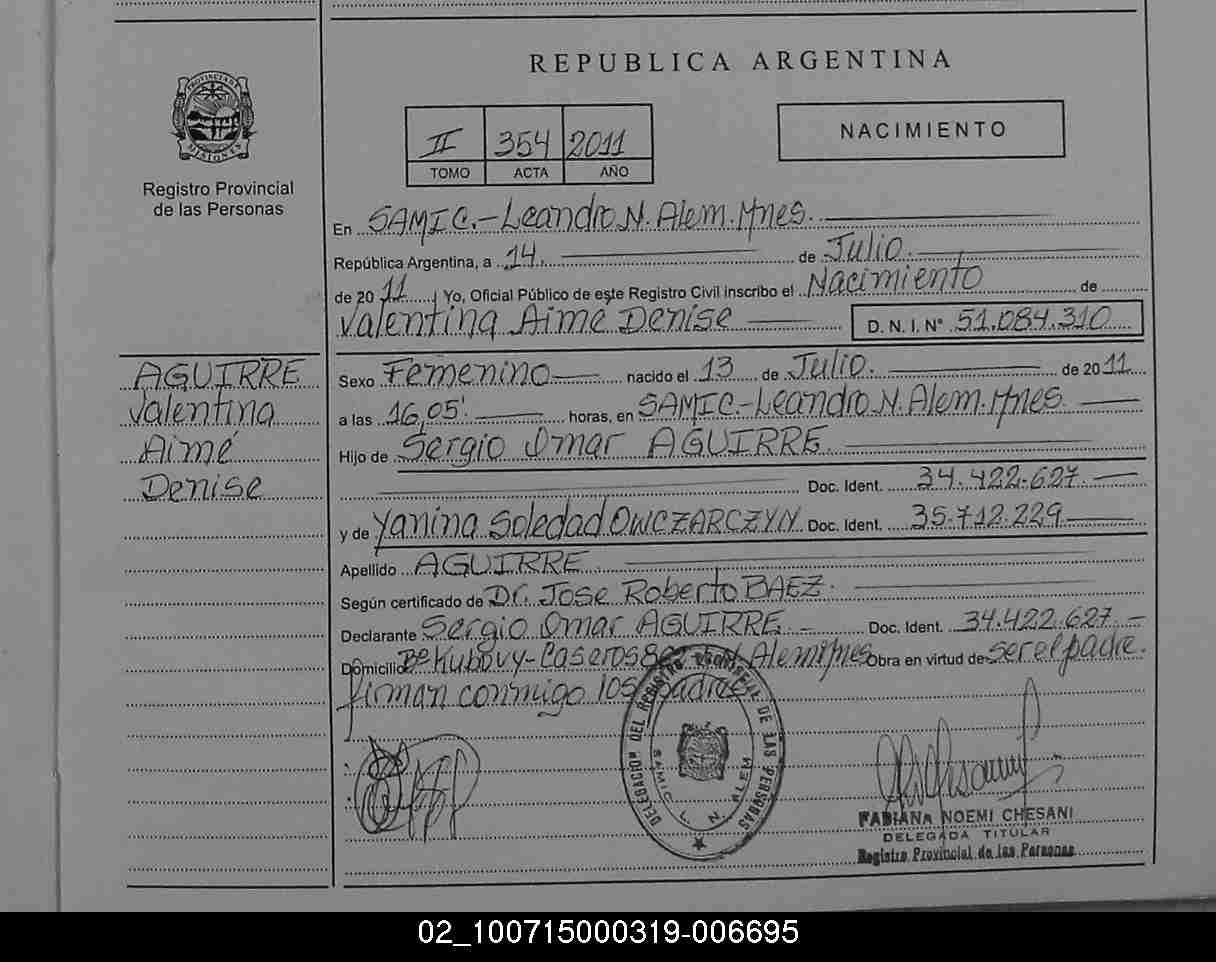 REPUBLICA ARGENTINA
PROVINCIA DE MISIONES
Registro Provincial
de las Personas
II 354 2011
TOMO ACTA AÑO
NACIMIENTO
En SAMIC.-Leandro N. Alem. Mnes.
República Argentina, a 14. de Julio.
de 2011 Yo, Oficial Público de este Registro Civil inscribo el Nacimiento de
Valentina Aimé Denise D. N. I. Nº 51.084.310
AGUIRRE
Valentina
Aimé
Denise
Sexo Femenino nacido el 13 de Julio. de 2011
a las 16,05' horas, en SAMIC.-Leandro N. Alem. Mnes.
Hijo de Sergio Omar AGUIRRE
Doc. Ident. 34.422.627
y de Yanina Soledad OWCZARCZYN Doc. Ident. 35.712.229
Apellido AGUIRRE
Según certificado de Dr. Jose Roberto BAEZ.
Declarante Sergio Omar AGUIRRE Doc. Ident. 34.422.627
Domicilio Bº Kubovy-Caseros N. Alem Mnes Obra en virtud de ser el padre.
firman conmigo los padres
DELEGACION DEL REGISTRO PROVINCIAL DE LAS PERSONAS
SAMIC L. N. ALEM
FABIANA NOEMI CHESANI
DELEGADA TITULAR
Registro Provincial de las Personas
02_100715000319-006695